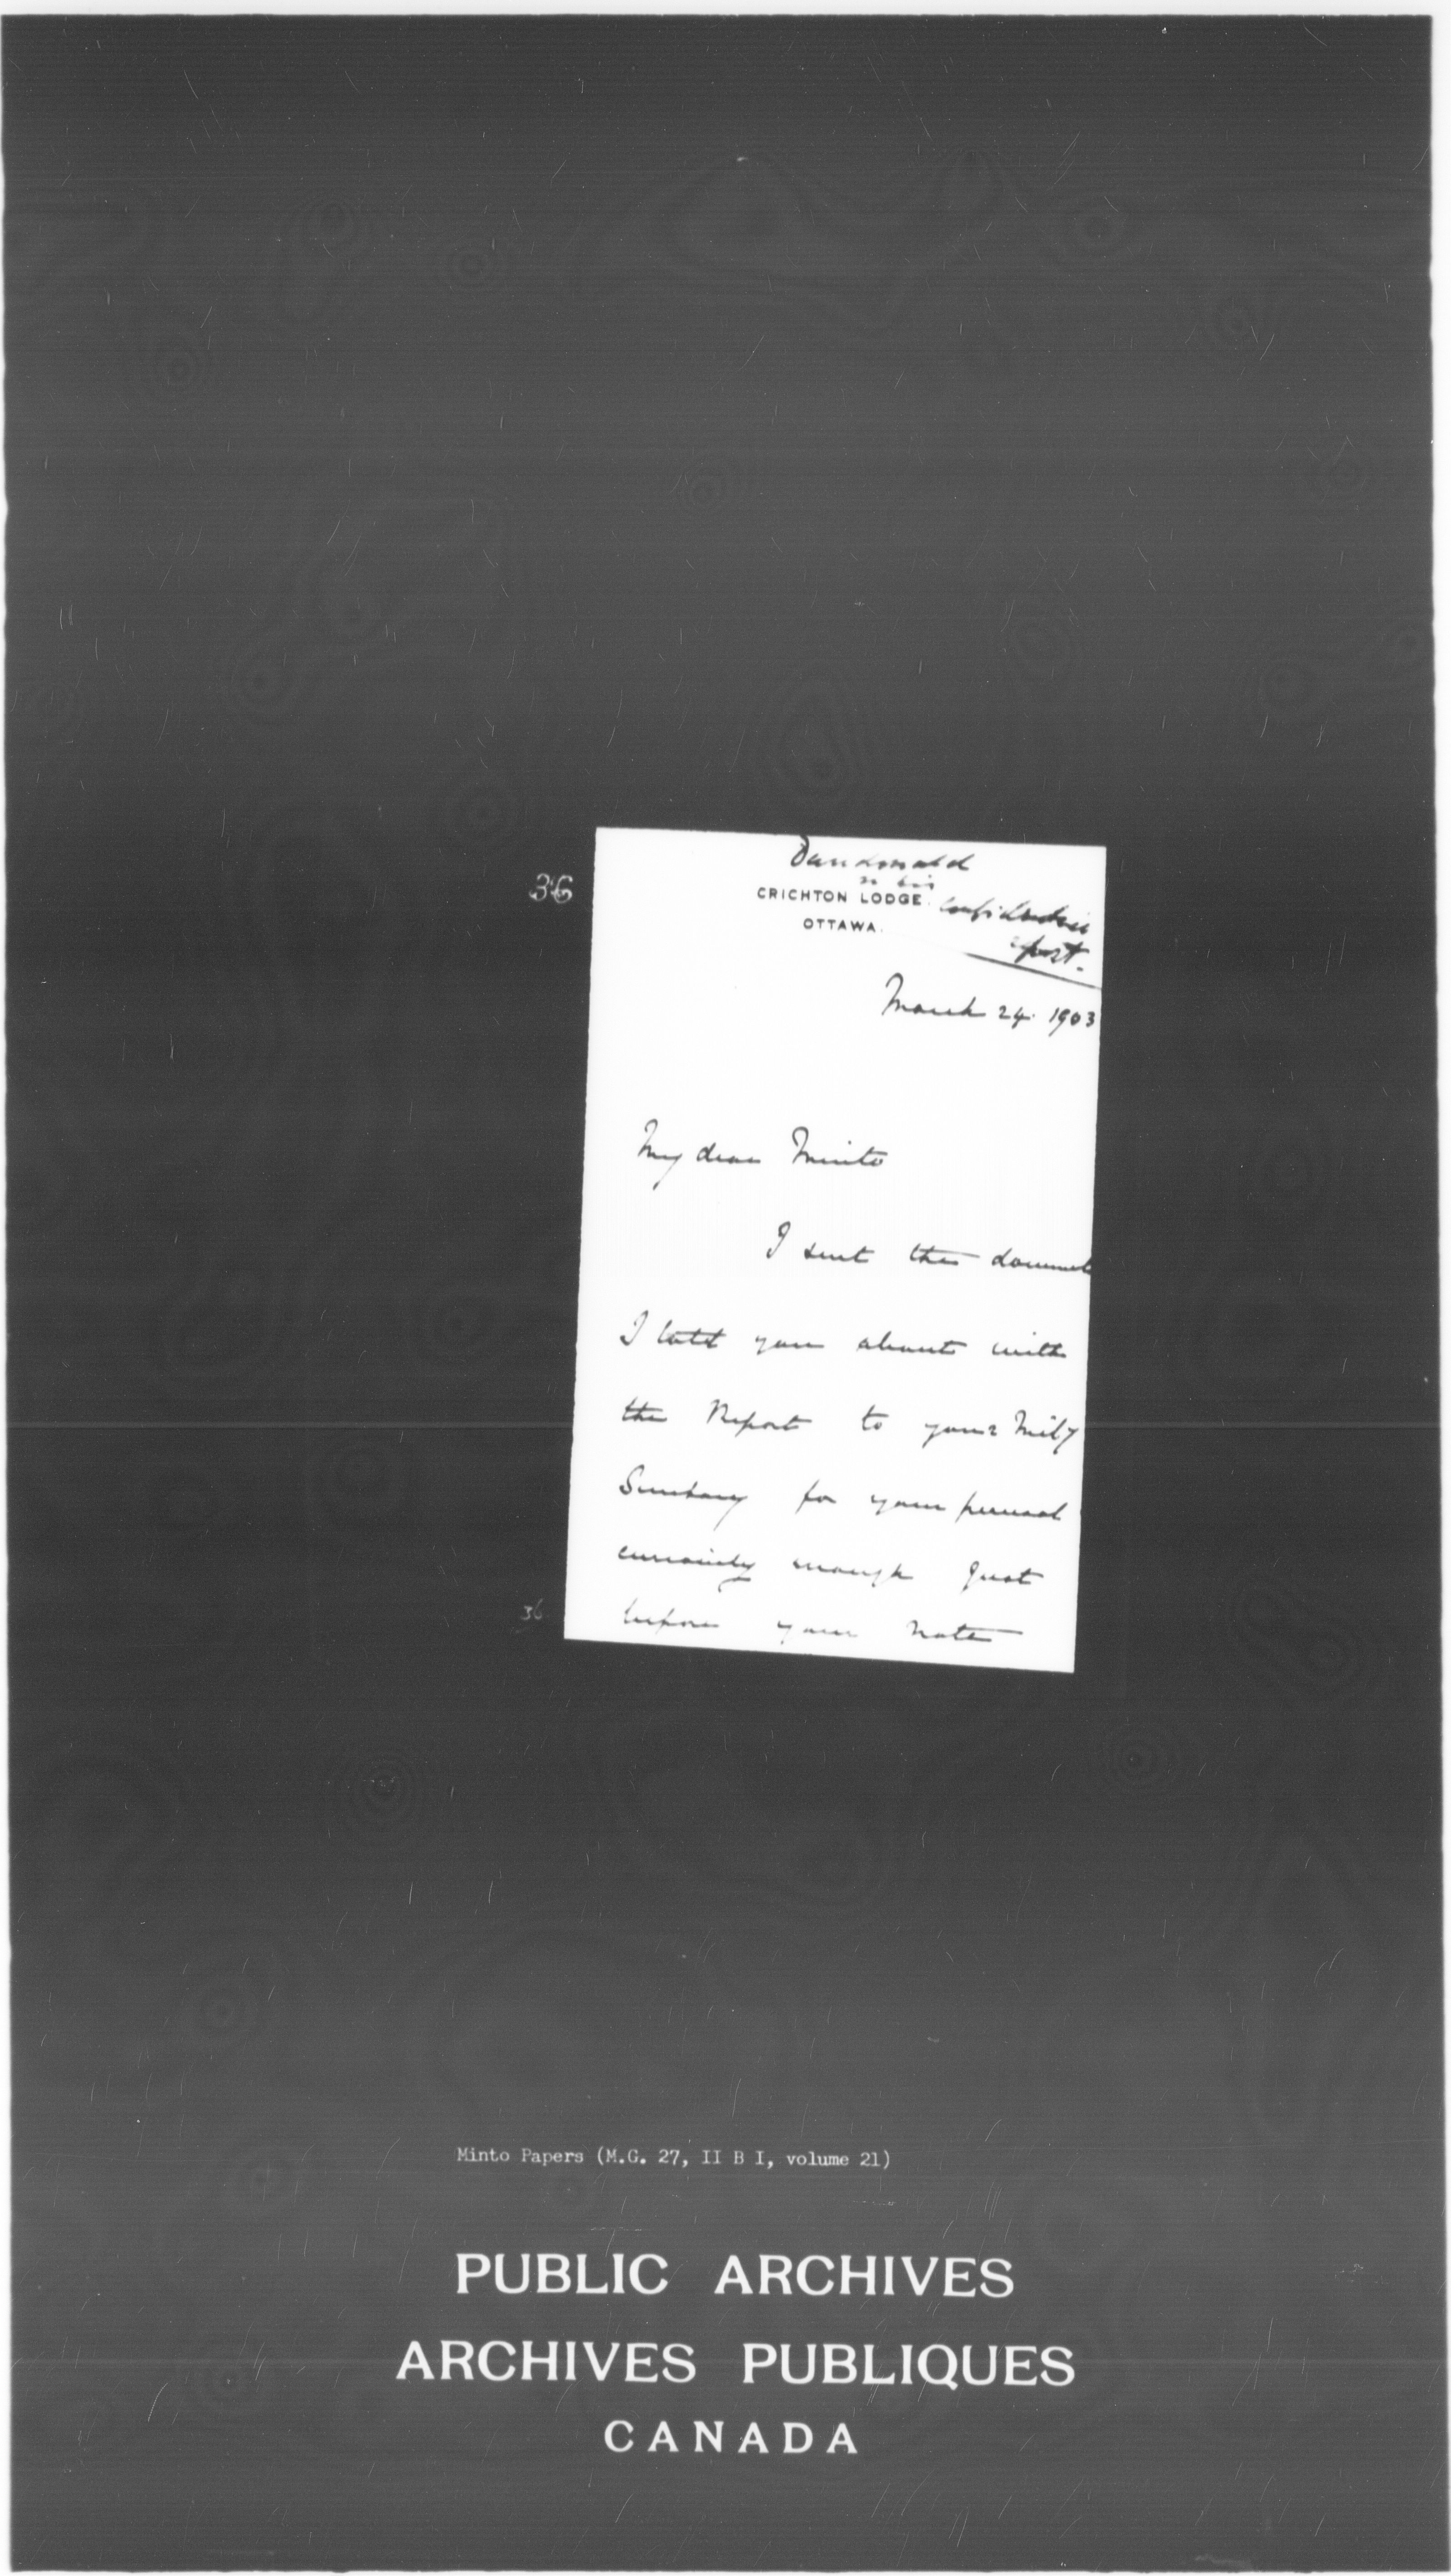 36
Dundonald
re his
CRICHTON LODGE. Confidential
OTTAWA. report.
March 24. 1903
My dear Minto
I sent the document
I told you about with
the Report to your Mily
Secretary for your perusal
curiously enough just
before your note
36
Minto Papers (M.G. 27, II B I, volume 21)
PUBLIC ARCHIVES
ARCHIVES PUBLIQUES
CANADA